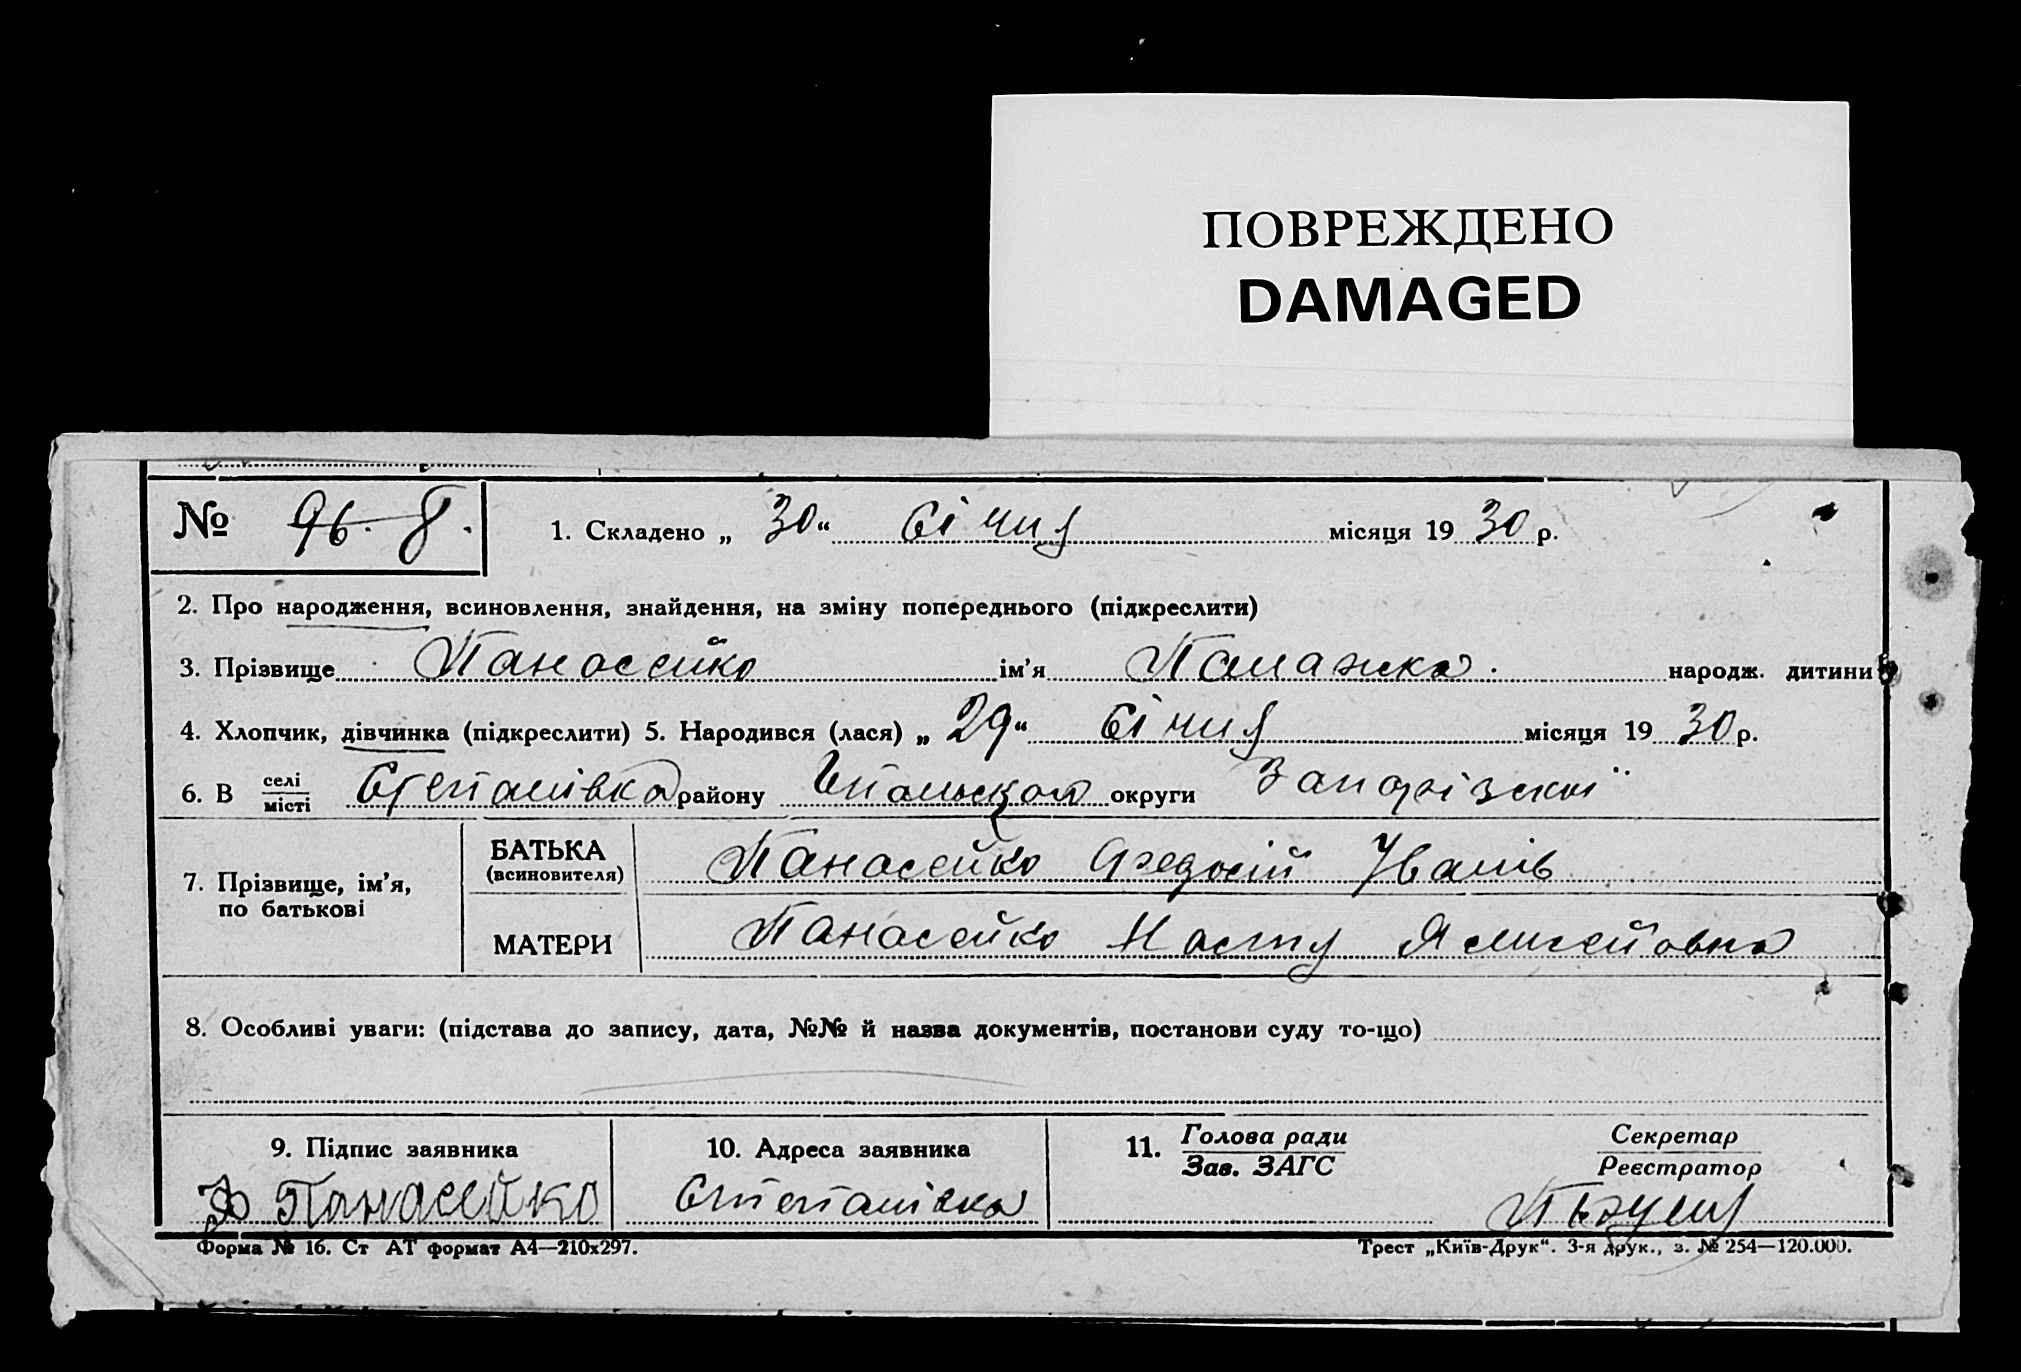 ПОВРЕЖДЕНО
DAMAGED
№ 96. 8.
1. Складено „30“ Січня місяця 1930 р.
2. Про народження, всиновлення, знайдення, на зміну попереднього (підкреслити)
3. Прізвище Панасейко ім’я Палажка народж. дитини
4. Хлопчик, дівчинка (підкреслити) 5. Народився (лася) „29“ Січня місяця 1930 р.
6. В селі/місті Степанівка району округи
7. Прізвище, ім’я, по батькові
БАТЬКА (всиновителя) Панасейко Федосій Іванів
МАТЕРИ Панасейко
8. Особливі уваги: (підстава до запису, дата, №№ й назва документів, постанови суду то-що)
9. Підпис заявника
Ф Панасейко
10. Адреса заявника
Степанівка
11. Голова ради / Зав. ЗАГС
Секретар / Реєстратор
Форма № 16. Ст АТ формат А4—210х297.
Трест „Київ-Друк“. 3-я друк., з. № 254—120.000.